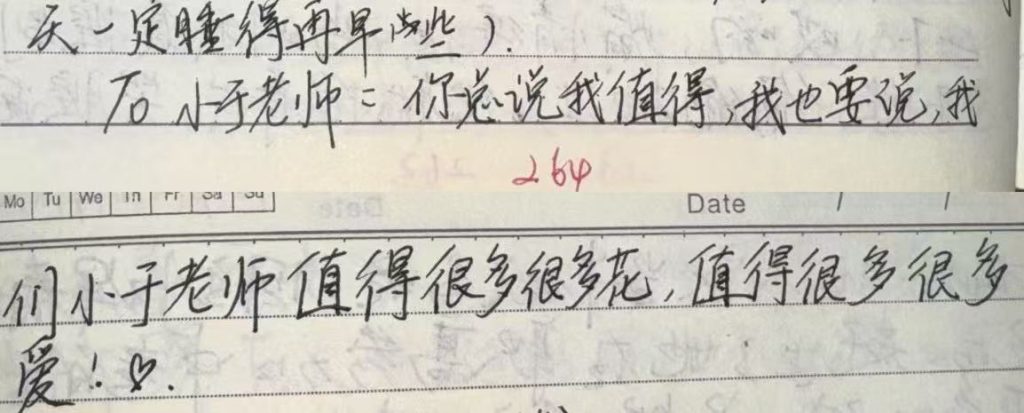 天一定睡得再早些).
To 小于老师：你总说我值得,我也要说,我
264
Mo Tu We Th Fr Sa Su
Date / /
们小于老师值得很多很多花,值得很多很多
爱!♡.